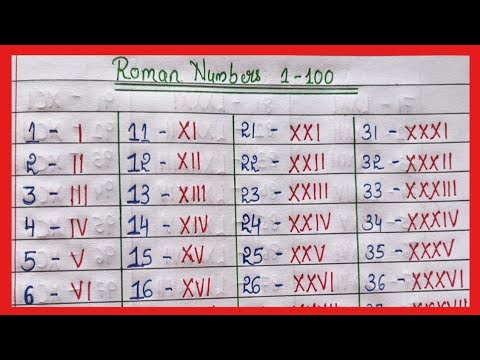 Roman Numbers 1-100
1 - I 11 - XI 21 - XXI 31 - XXXI
2 - II 12 - XII 22 - XXII 32 - XXXII
3 - III 13 - XIII 23 - XXIII 33 - XXXIII
4 - IV 14 - XIV 24 - XXIV 34 - XXXIV
5 - V 15 - XV 25 - XXV 35 - XXXV
6 - VI 16 - XVI 26 - XXVI 36 - XXXVI